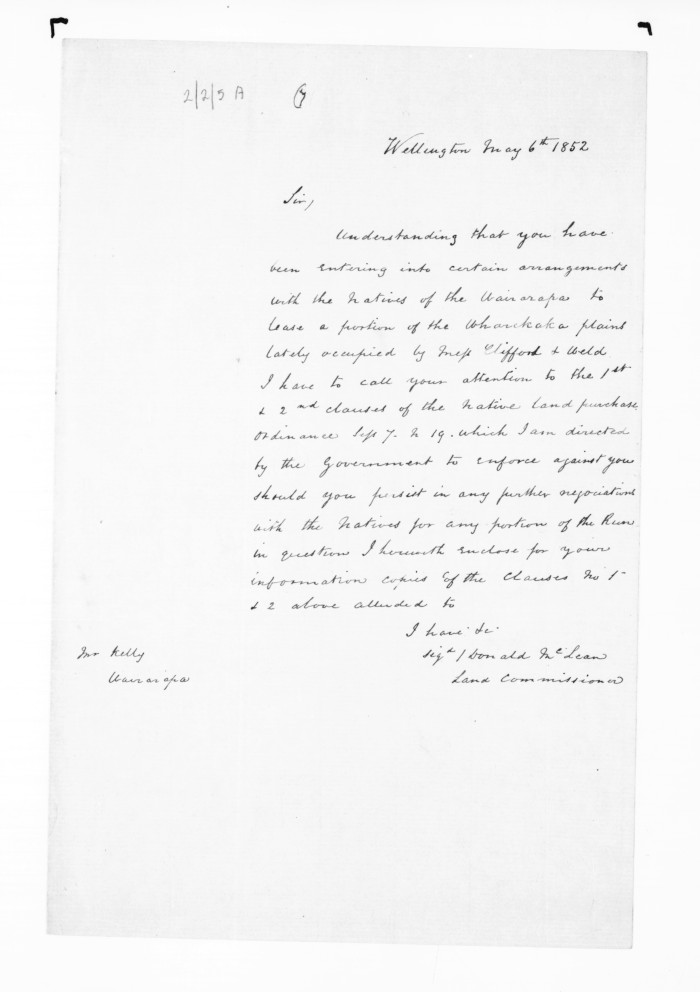 2/2/9 A
Wellington May 6th 1852
Sir,
Understanding that you have
been entering into certain arrangements
with the Natives of the Wairarapa to
lease a portion of the Wharekaka plains
lately occupied by Mess Clifford & Weld
I have to call your attention to the 1st
& 2nd clauses of the Native land purchase
Ordinance Sess 7. N 19. which I am directed
by the Government to enforce against you
should you persist in any further negociations
with the Natives for any portion of the Run
in question I herewith enclose for your
information copies of the Clauses No 1
& 2 above alluded to
I have &c
Sigd / Donald McLean
Land Commissioner
Mr Kelly
Wairarapa